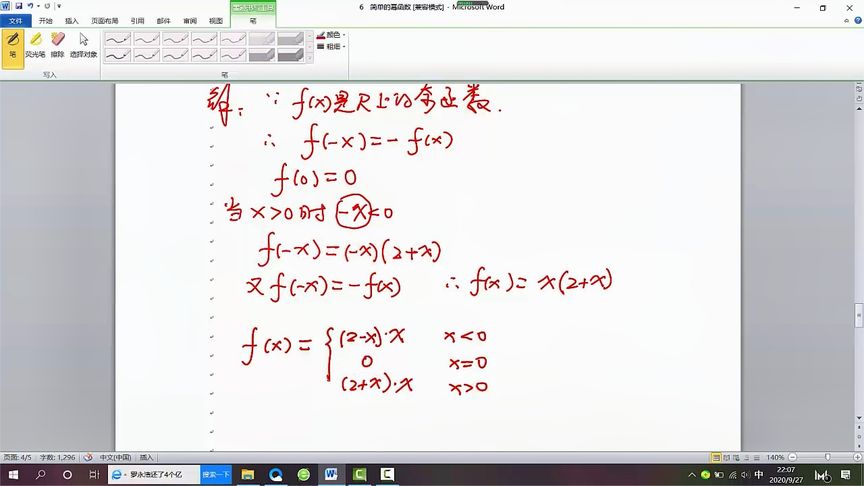 6 简单的幂函数 [兼容模式] - Microsoft Word
文件 开始 插入 页面布局 引用 邮件 审阅 视图 笔
笔 荧光笔 擦除 选择对象 颜色 粗细
写入 笔
解: ∵ f(x)是R上的奇函数.
∴ f(-x)=-f(x)
f(0)=0
当 x>0时 -x<0
f(-x)=(-x)(2+x)
又 f(-x)=-f(x) ∴ f(x)= x(2+x)
f(x)= { (2-x)·x x<0
0 x=0
(2+x)·x x>0
页面: 4/5 字数: 1,296 中文(中国) 插入 140%
罗永浩还了4个亿 搜索一下 中 22:07
2020/9/27